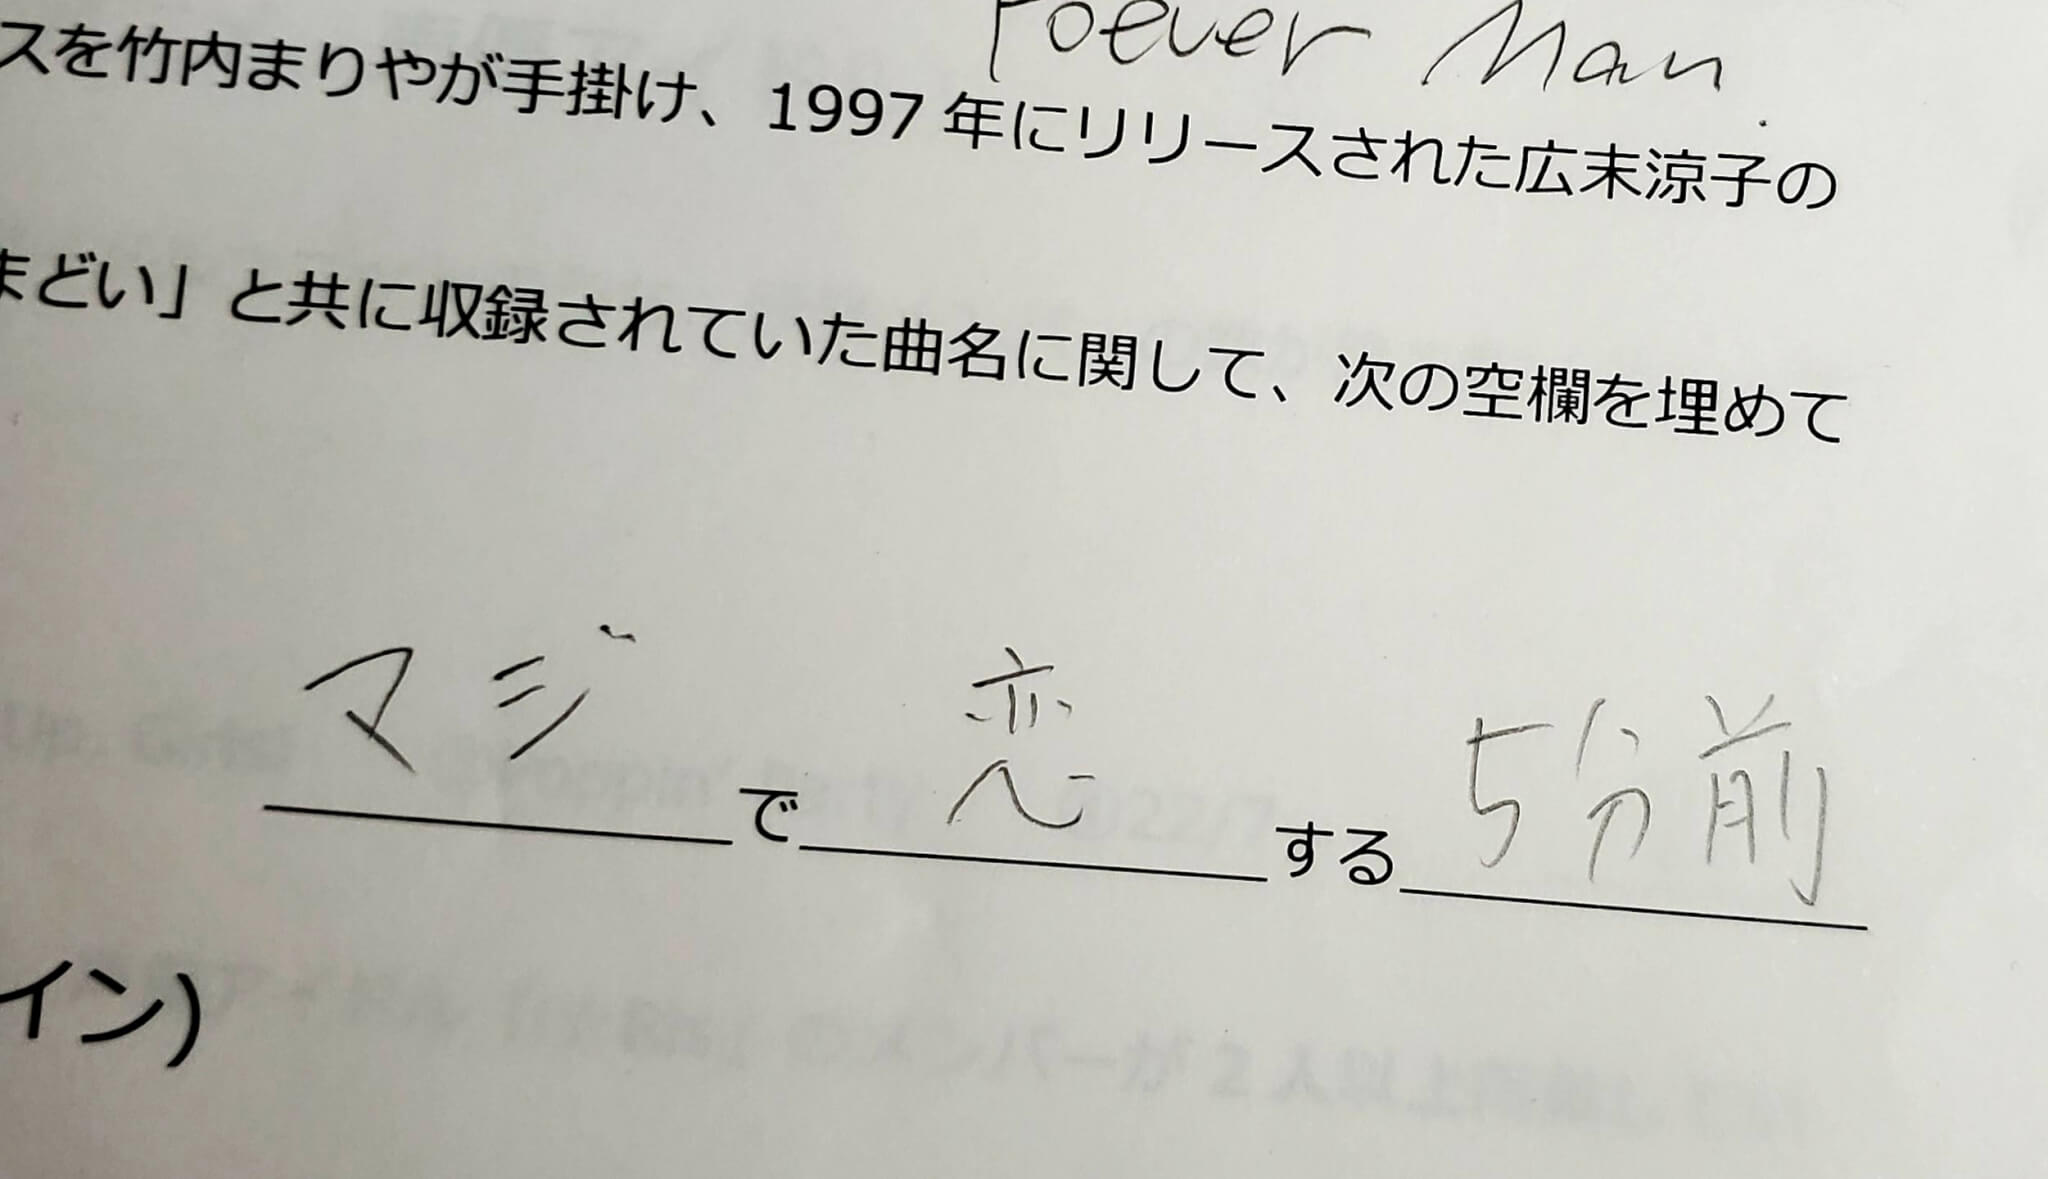 Foever Man
スを竹内まりやが手掛け、1997年にリリースされた広末涼子の
まどい」と共に収録されていた曲名に関して、次の空欄を埋めて
マジで恋する5分前
イン)